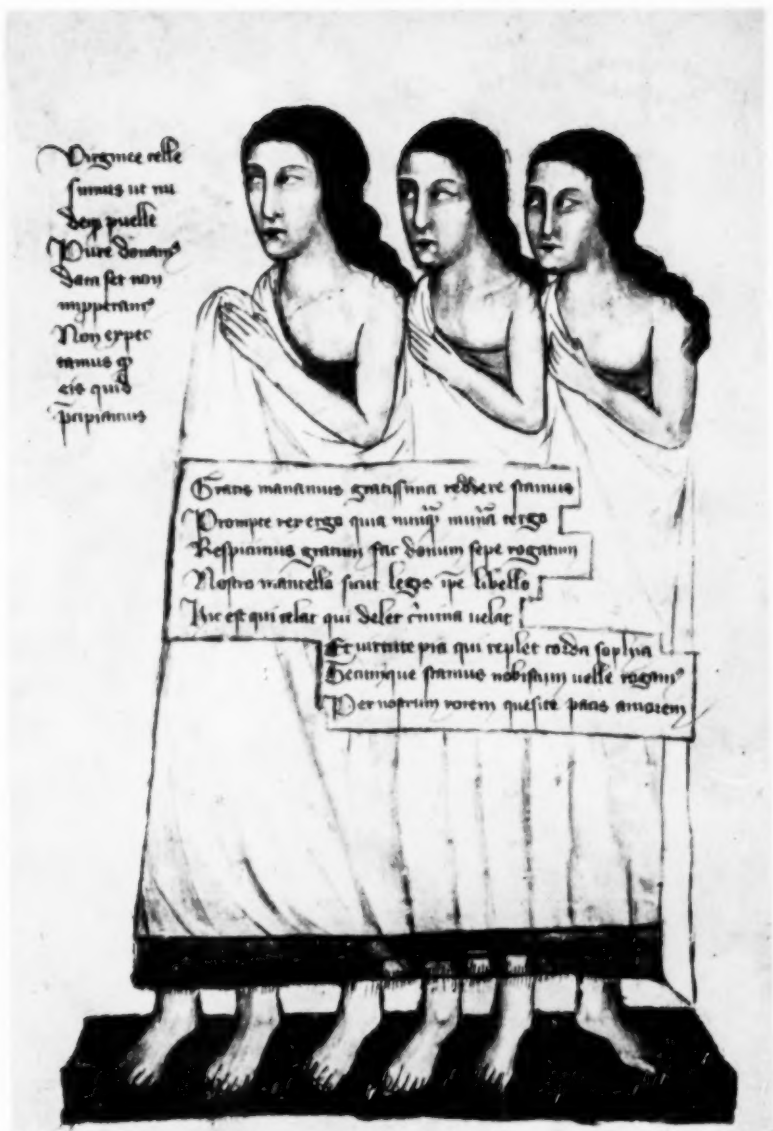 Virginee celle
sumus ut nu
deqꝫ puelle
Pure donamꝰ
data set non
impperamꝰ
Non expec
tamus
eis quid
p̄cipiamus
Gratis manamus gratissima reddere stamus
Prompte rex ergo quia nunqꝫ mun̄a tergo
Respicimus gratum fac donum sepe rogatum
Nostro mantello sicut legis ip̄e libello
Hic est qui celat qui delet c̄mina uelat
Et uirtute pia qui replet corda sophia
Tecumque stamus nobiscum uelle rogamꝰ
Per nostrum rorem quesite pacis amorem